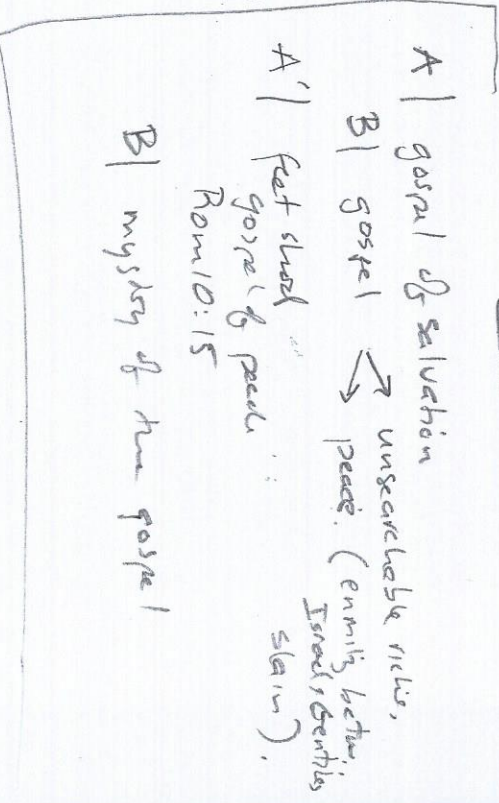 A| gospel of salvation
B| gospel
unsearchable riches,
peace. (enmity betw.
Israel, Gentiles
slain).
A'| feet shod
gospel of peace
Rom 10:15
B| mystery of the gospel